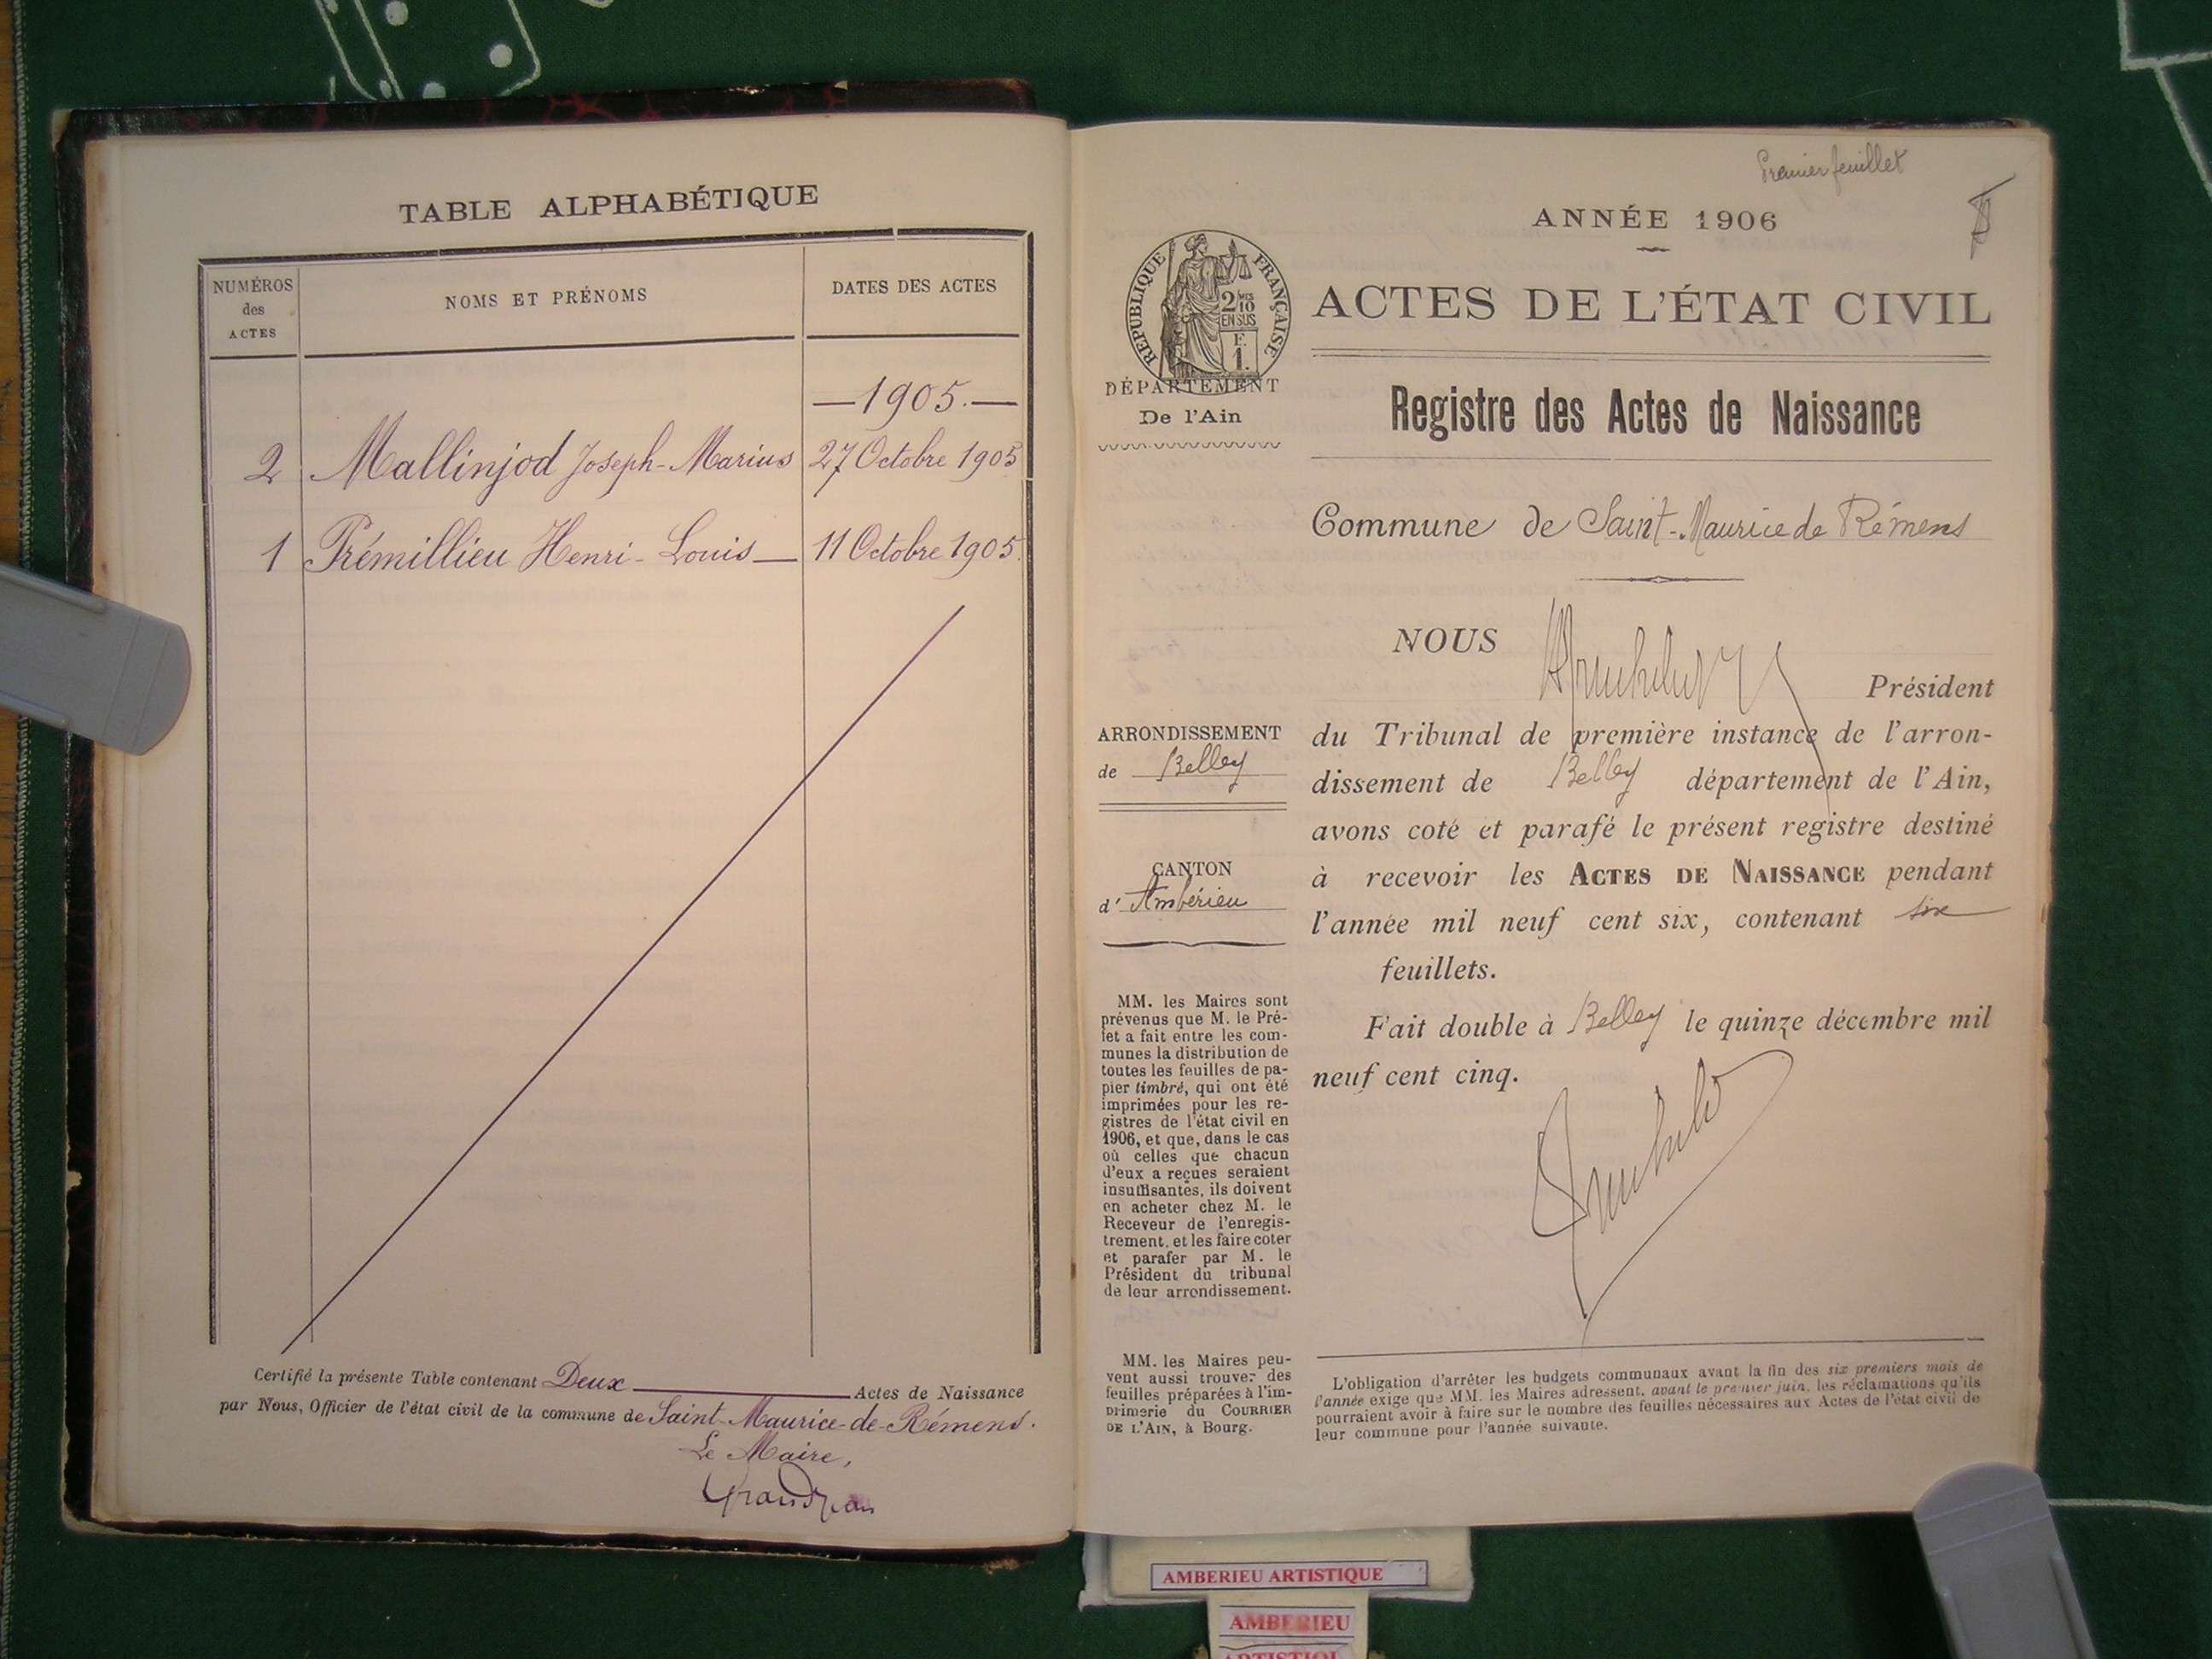 TABLE ALPHABÉTIQUE
NUMÉROS
des
ACTES
NOMS ET PRÉNOMS
DATES DES ACTES
—1905.—
2 Mallinjod Joseph-Marius 27 Octobre 1905
1 Prémillieu Henri-Louis— 11 Octobre 1905.
Certifié la présente Table contenant Deux Actes de Naissance
par Nous, Officier de l'état civil de la commune de Saint-Maurice-de-Rémens.
Le Maire,
Grandjean
Premier feuillet
ANNÉE 1906
RÉPUBLIQUE FRANÇAISE
2 MES
10
EN SUS
F.
1.
ACTES DE L'ÉTAT CIVIL
DÉPARTEMENT
De l'Ain
Registre des Actes de Naissance
Commune de Saint-Maurice de Rémens
NOUS
Président
du Tribunal de première instance de l'arron-
dissement de Belley département de l'Ain,
avons coté et parafé le présent registre destiné
à recevoir les ACTES DE NAISSANCE pendant
l'année mil neuf cent six, contenant six
feuillets.
Fait double à Belley le quinze décembre mil
neuf cent cinq.
ARRONDISSEMENT
de Belley
CANTON
d'Ambérieu
MM. les Maires sont
prévenus que M. le Pré-
fet a fait entre les com-
munes la distribution de
toutes les feuilles de pa-
pier timbré, qui ont été
imprimées pour les re-
gistres de l'état civil en
1906, et que, dans le cas
où celles que chacun
d'eux a reçues seraient
insuffisantes, ils doivent
en acheter chez M. le
Receveur de l'enregis-
trement, et les faire coter
et parafer par M. le
Président du tribunal
de leur arrondissement.
MM. les Maires peu-
vent aussi trouver des
feuilles préparées à l'im-
primerie du COURRIER
DE L'AIN, à Bourg.
L'obligation d'arrêter les budgets communaux avant la fin des six premiers mois de
l'année exige que MM. les Maires adressent, avant le premier juin, les réclamations qu'ils
pourraient avoir à faire sur le nombre des feuilles nécessaires aux Actes de l'état civil de
leur commune pour l'année suivante.
AMBERIEU ARTISTIQUE
AMBERIEU